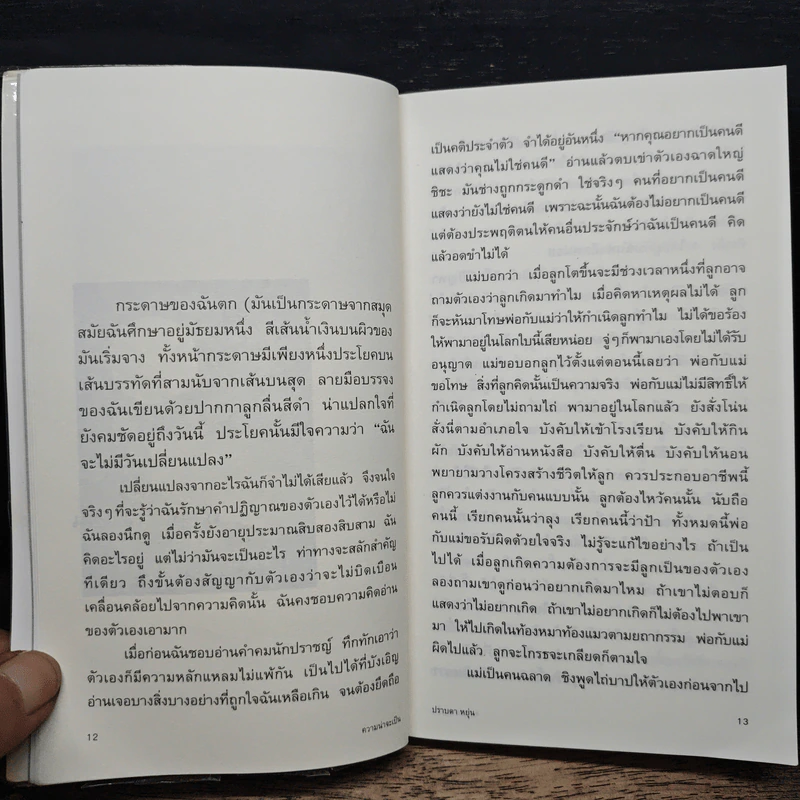 กระดาษของฉันตก (มันเป็นกระดาษจากสมุด
สมัยฉันศึกษาอยู่มัธยมหนึ่ง สีเส้นน้ำเงินบนผิวของ
มันเริ่มจาง ทั้งหน้ากระดาษมีเพียงหนึ่งประโยคบน
เส้นบรรทัดที่สามนับจากเส้นบนสุด ลายมือบรรจง
ของฉันเขียนด้วยปากกาลูกลื่นสีดำ น่าแปลกใจที่
ยังคมชัดอยู่ถึงวันนี้ ประโยคนั้นมีใจความว่า “ฉัน
จะไม่มีวันเปลี่ยนแปลง”
เปลี่ยนแปลงจากอะไรฉันก็จำไม่ได้เสียแล้ว จึงจนใจ
จริงๆ ที่จะรู้ว่าฉันรักษาคำปฏิญาณของตัวเองไว้ได้หรือไม่
ฉันลองนึกดู เมื่อครั้งยังอายุประมาณสิบสองสิบสาม ฉัน
คิดอะไรอยู่ แต่ไม่ว่ามันจะเป็นอะไร ท่าทางจะสลักสำคัญ
ทีเดียว ถึงขั้นต้องสัญญากับตัวเองว่าจะไม่บิดเบือน
เคลื่อนคล้อยไปจากความคิดนั้น ฉันคงชอบความคิดอ่าน
ของตัวเองเอามาก
เมื่อก่อนฉันชอบอ่านคำคมนักปราชญ์ ทึกทักเอาว่า
ตัวเองก็มีความหลักแหลมไม่แพ้กัน เป็นไปได้ที่บังเอิญ
อ่านเจอบางสิ่งบางอย่างที่ถูกใจฉันเหลือเกิน จนต้องยึดถือ
12
ความน่าจะเป็น
เป็นคติประจำตัว จำได้อยู่อันหนึ่ง “หากคุณอยากเป็นคนดี
แสดงว่าคุณไม่ใช่คนดี” อ่านแล้วตบเข่าตัวเองฉาดใหญ่
ชิชะ มันช่างถูกกระดูกดำ ใช่จริงๆ คนที่อยากเป็นคนดี
แสดงว่ายังไม่ใช่คนดี เพราะฉะนั้นฉันต้องไม่อยากเป็นคนดี
แต่ต้องประพฤติตนให้คนอื่นประจักษ์ว่าฉันเป็นคนดี คิด
แล้วอดขำไม่ได้
แม่บอกว่า เมื่อลูกโตขึ้นจะมีช่วงเวลาหนึ่งที่ลูกอาจ
ถามตัวเองว่าลูกเกิดมาทำไม เมื่อคิดหาเหตุผลไม่ได้ ลูก
ก็จะหันมาโทษพ่อกับแม่ว่าให้กำเนิดลูกทำไม ไม่ได้ขอร้อง
ให้พามาอยู่ในโลกใบนี้เสียหน่อย จู่ๆ ก็พามาเองโดยไม่ได้รับ
อนุญาต แม่ขอบอกลูกไว้ตั้งแต่ตอนนี้เลยว่า พ่อกับแม่
ขอโทษ สิ่งที่ลูกคิดนั้นเป็นความจริง พ่อกับแม่ไม่มีสิทธิ์ให้
กำเนิดลูกโดยไม่ถามไถ่ พามาอยู่ในโลกแล้ว ยังสั่งโน่น
สั่งนี่ตามอำเภอใจ บังคับให้เข้าโรงเรียน บังคับให้กิน
ผัก บังคับให้อ่านหนังสือ บังคับให้ตื่น บังคับให้นอน
พยายามวางโครงสร้างชีวิตให้ลูก ควรประกอบอาชีพนี้
ลูกควรแต่งงานกับคนแบบนั้น ลูกต้องไหว้คนนั้น นับถือ
คนนี้ เรียกคนนั้นว่าลุง เรียกคนนี้ว่าป้า ทั้งหมดนี้พ่อ
กับแม่ขอรับผิดด้วยใจจริง ไม่รู้จะแก้ไขอย่างไร ถ้าเป็น
ไปได้ เมื่อลูกเกิดความต้องการจะมีลูกเป็นของตัวเอง
ลองถามเขาดูก่อนว่าอยากเกิดมาไหม ถ้าเขาไม่ตอบก็
แสดงว่าไม่อยากเกิด ถ้าเขาไม่อยากเกิดก็ไม่ต้องไปพาเขา
มา ให้ไปเกิดในท้องหมาท้องแมวตามยถากรรม พ่อกับแม่
ผิดไปแล้ว ลูกจะโกรธจะเกลียดก็ตามใจ
แม่เป็นคนฉลาด ชิงพูดไถ่บาปให้ตัวเองก่อนจากไป
ปราบดา หยุ่น
13